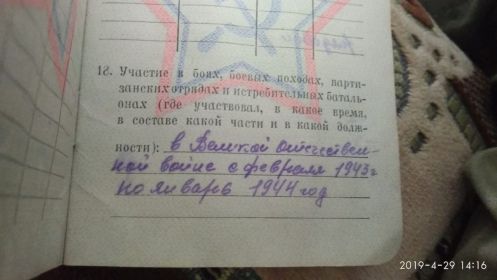 18. Участие в боях, боевых походах, парти-
занских отрядах и истребительных баталь-
онах (где участвовал, в какое время,
в составе какой части и в какой долж-
ности): в Великой отечествен-
ной войне с февраля 1943 г
по январь 1944 год
2019-4-29 14:16